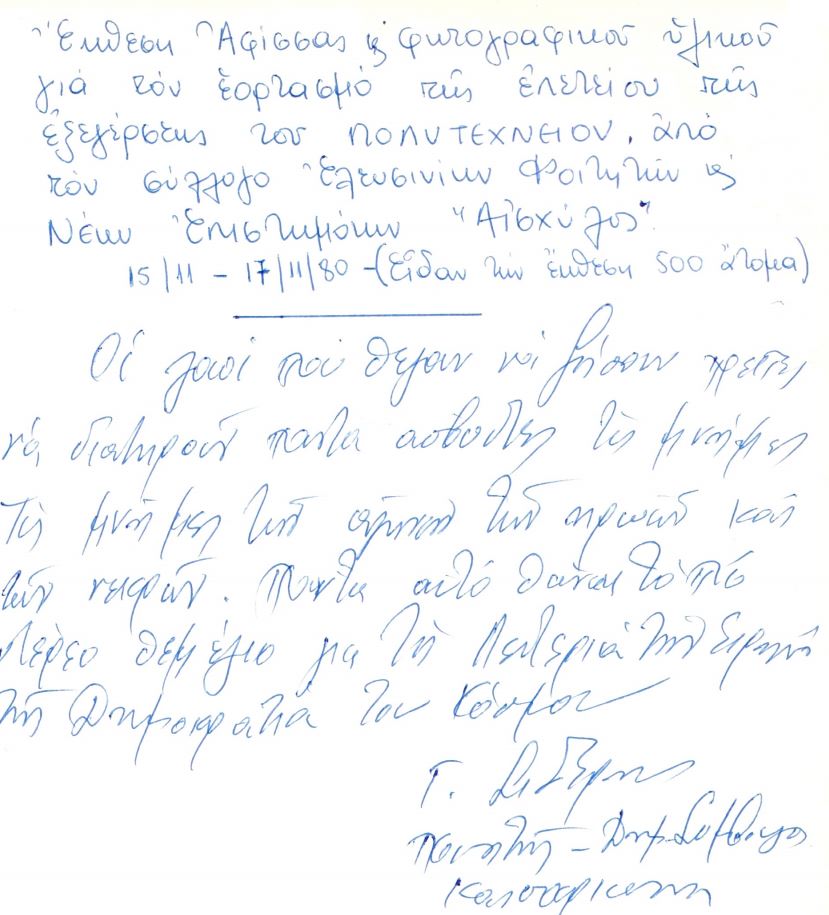 Ἔκθεση Ἀφίσσας ϗ φωτογραφικοῦ ὑλικοῦ
γιά τόν ἑορτασμό τῆς ἐπετείου τῆς
ἐξεγέρσεως του ΠΟΛΥΤΕΧΝΕΙΟΥ, ἀπό
τόν σύλλογο Ἐλευσινίων Φοιτητῶν ϗ
Νέων Ἐπιστημόνων "Αἰσχύλος".
15/11 – 17/11/80 –(Εἶδαν τήν ἔκθεση 500 ἄτομα)
Οἱ λαοί πού θελαν νά ζήσουν πρεπει
νά διατηροῦν παντα ασβυστες τις μνήμες
Τις μνήμες τῶν τῶν ηρωών και
τῶν νεκρῶν. Παντα αυτό θαναι το πιό
στέρεο θεμέλιο για τη Λευτεριά την Ειρηνη
τη Δημοκρατια του Κόσμου
Γ.
Ποιητής – Δημ. Συμβουλος
Καισαριανη